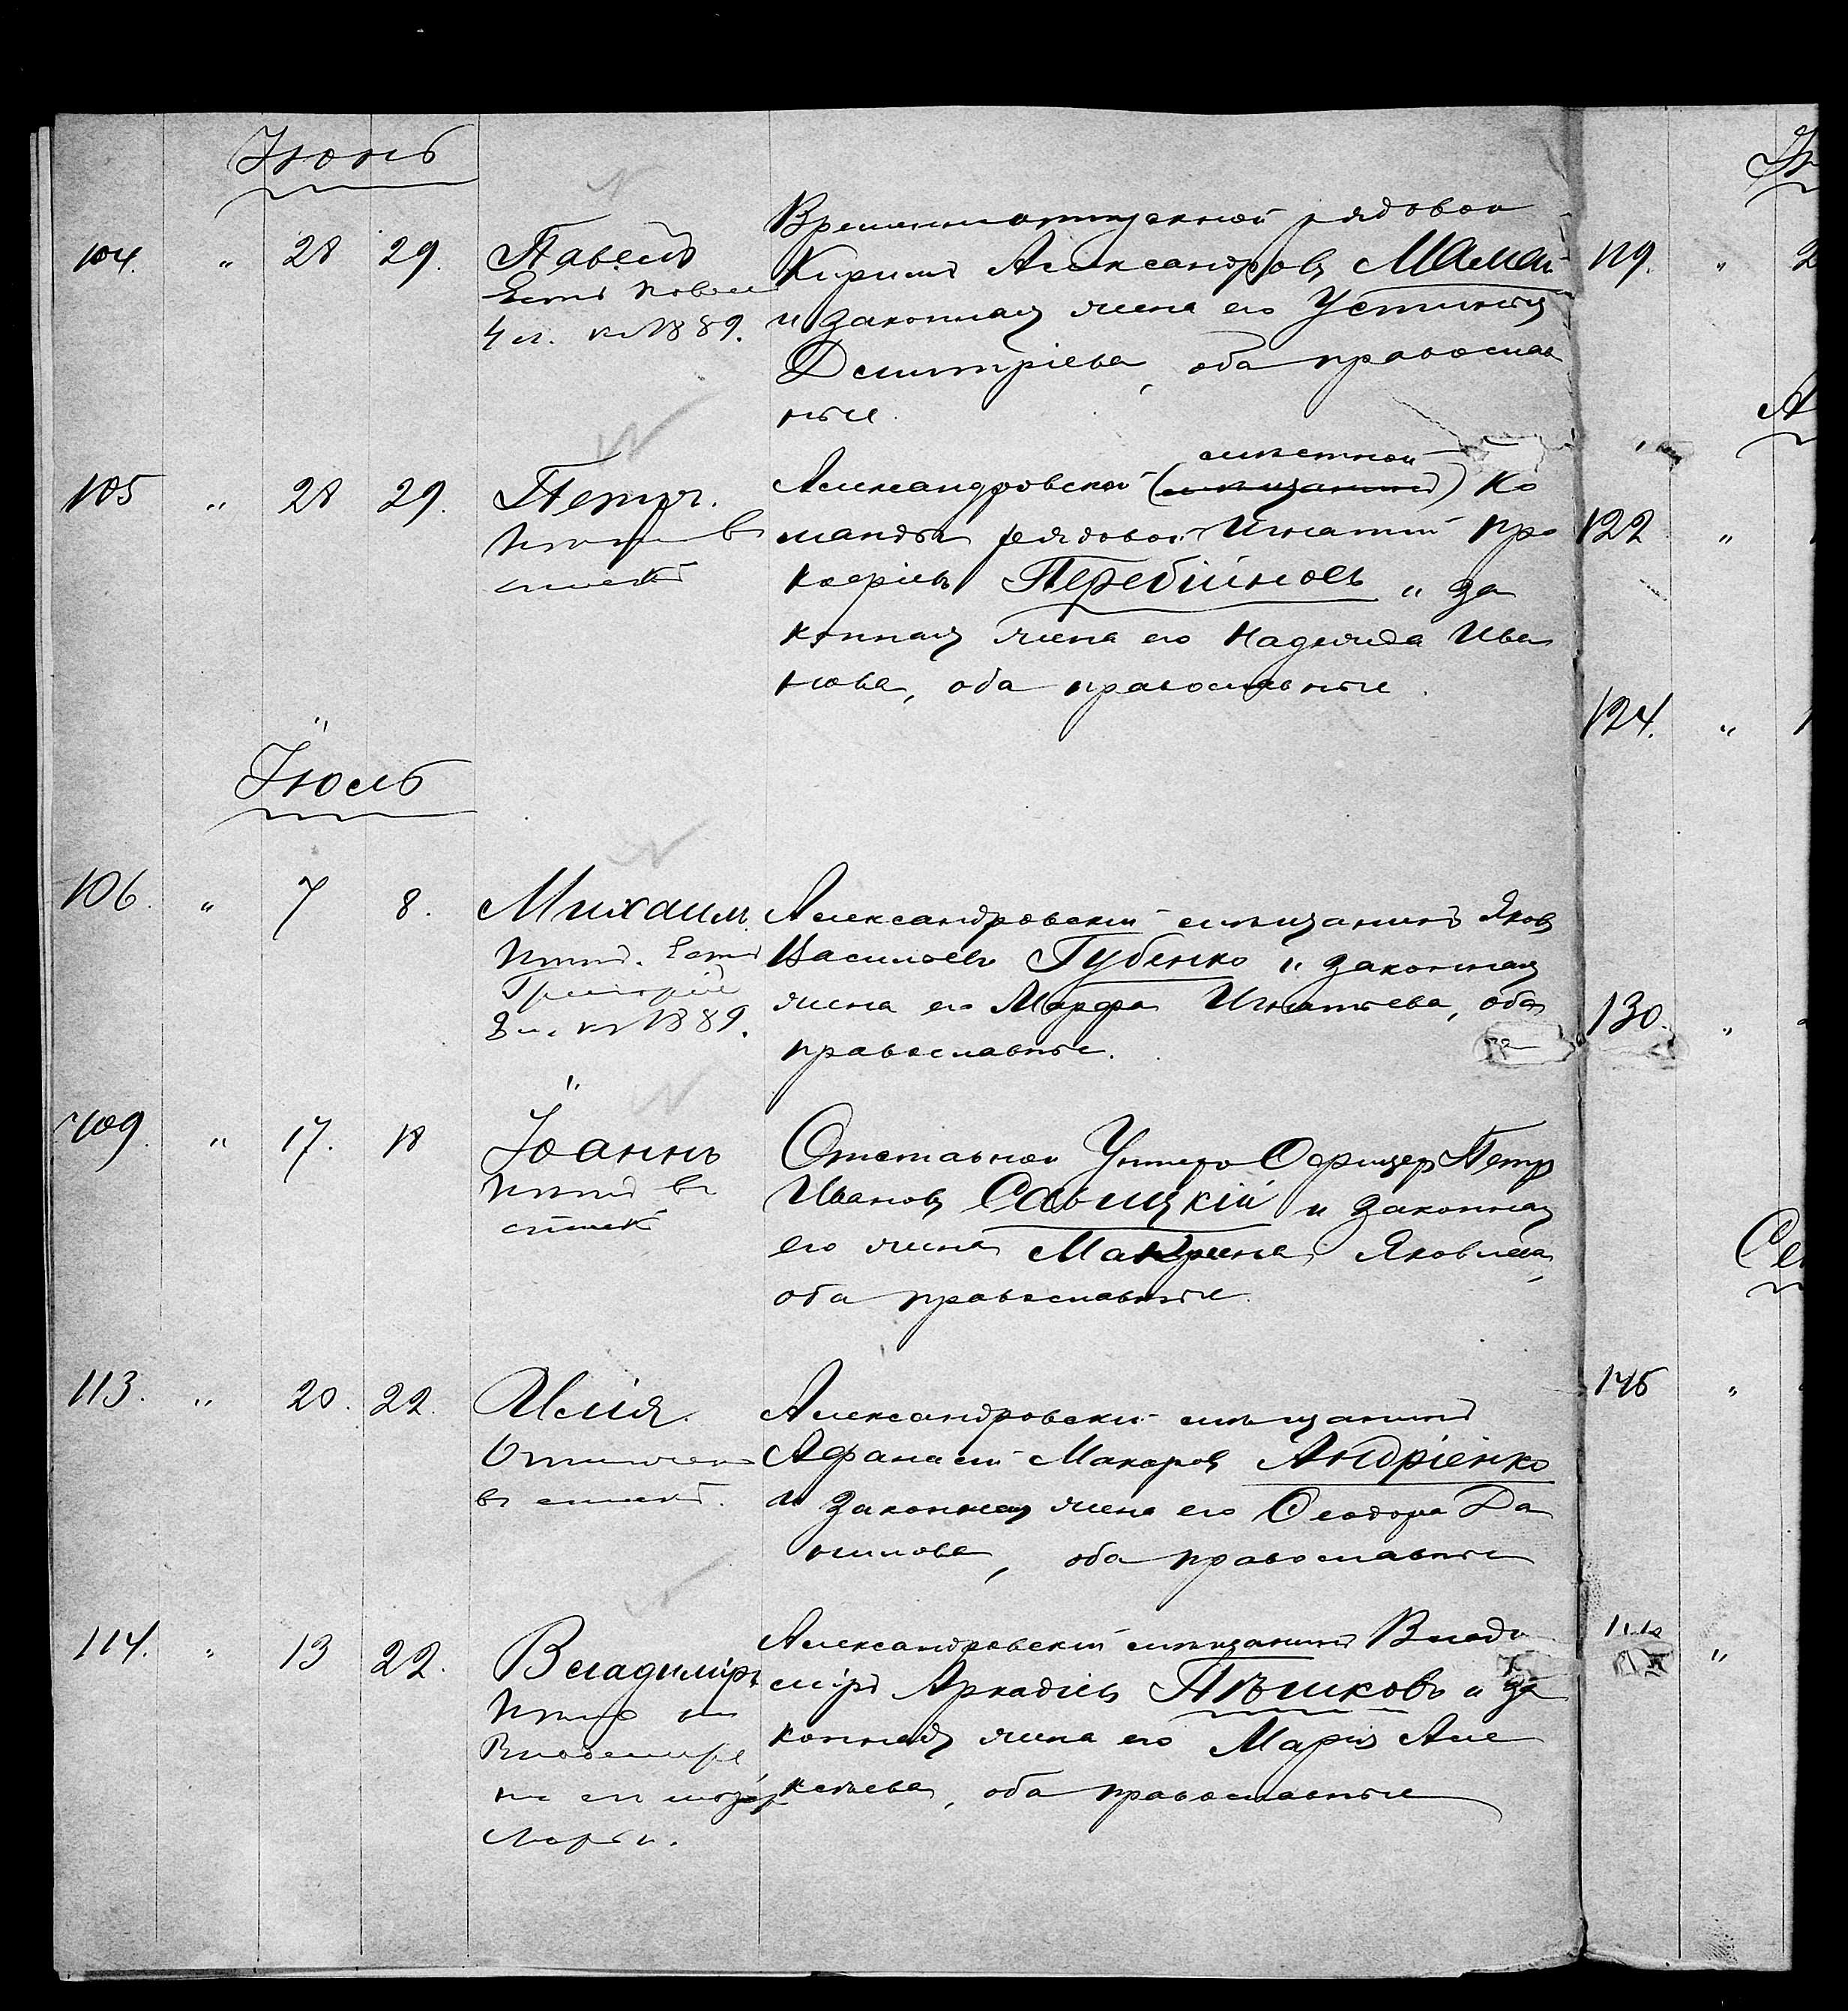 Іюнь
104. " 28 29. Павелъ
Есть Павел
4 л. въ 1889.
Временноотпускной рядовой
Кирилъ Александровъ Мамай
и законная жена его Устинья
Дмитріева, оба православ
ные.
105 " 28 29. Петръ.
Нѣтъ въ
спискѣ
Александровской (мѣстной мѣщанинъ) Ко
манды рядовой Игнатій Про
кофіевъ Перебійносъ и за
конная жена его Надежда Ива
нова, оба православные.
Іюль
106. " 7 8. Михаилъ.
Нѣтъ. Есть
Григорій
2 л. въ 1889.
Александровскій мѣщанинъ Яковъ
Васильевъ Губенко и законная
жена его Марфа Игнатьева, оба
православные.
109. " 17. 18 Іоаннъ
Нѣтъ въ
спискѣ
Отставной Унтеръ Офицеръ Петръ
Ивановъ Савицкій и законная
его жена Макрина Яковлева,
оба православные.
113. " 20. 22. Илія.
Отмѣченъ
въ спискѣ.
Александровскій мѣщанинъ
Афанасій Макаровъ Андріенко
и законная жена его Ѳеодора Да
нилова, оба православные
114. " 13 22. Владиміръ
Нѣтъ ни
Владиміра
ни его
Маріи.
Александровскій мѣщанинъ Влади
міръ Аркадіевъ Пѣшковъ и за
конная жена его Марія Але
ксѣева, оба православные
119. "
122 "
124. "
130. "
Се
145 "
"